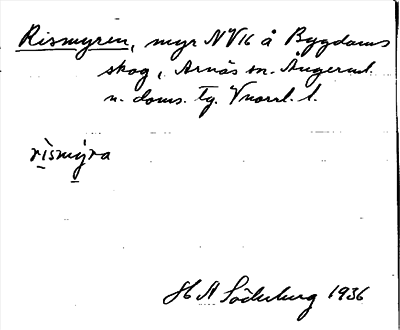 Rismyren, myr NV16 å Bygdoms
skog, Arnäs sn. Ångerml.
n. doms. Tg. Vnorrl. l.
rìsmýra
H A Söderburg 1936